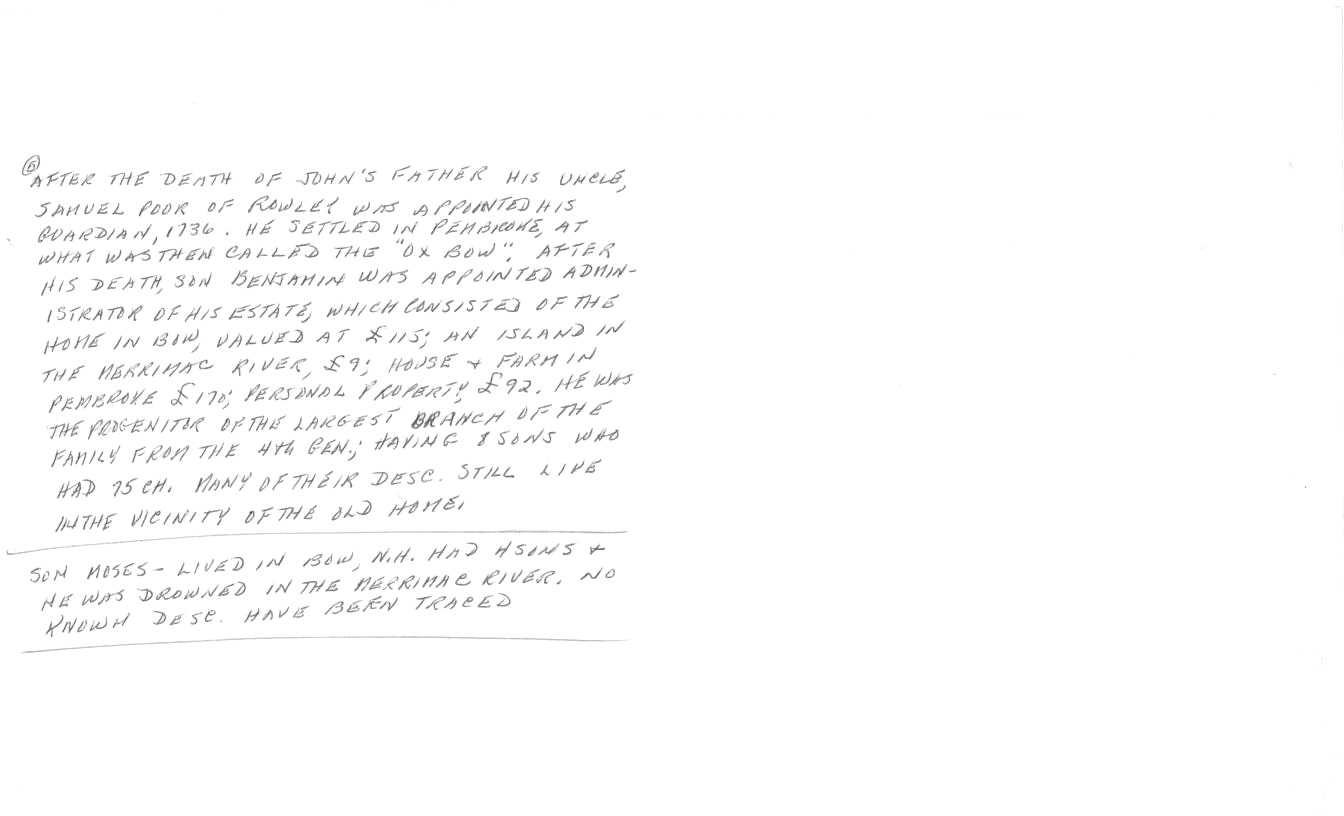 ⑥
AFTER THE DEATH OF JOHN'S FATHER HIS UNCLE,
SAMUEL POOR OF ROWLEY WAS APPOINTED HIS
GUARDIAN, 1736. HE SETTLED IN PEMBROKE, AT
WHAT WAS THEN CALLED THE "OX BOW". AFTER
HIS DEATH, SON BENJAMIN WAS APPOINTED ADMIN-
ISTRATOR OF HIS ESTATE, WHICH CONSISTED OF THE
HOME IN BOW, VALUED AT £115; AN ISLAND IN
THE MERRIMAC RIVER, £9; HOUSE + FARM IN
PEMBROKE £170; PERSONAL PROPERTY, £92. HE WAS
THE PROGENITOR OF THE LARGEST BRANCH OF THE
FAMILY FROM THE 4th GEN.; HAVING 8 SONS WHO
HAD 75 CH. MANY OF THEIR DESC. STILL LIVE
IN THE VICINITY OF THE OLD HOME.
SON MOSES - LIVED IN BOW, N.H. HAD 4 SONS +
HE WAS DROWNED IN THE MERRIMAC RIVER. NO
KNOWN DESC. HAVE BEEN TRACED